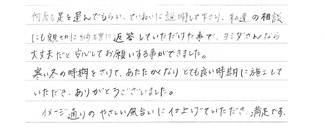 何度も足を運んでもらい、ていねいに説明して下さり、私達の相談
にも親切に納得に返答していただけた事で、ヨシダさんなら
大丈夫だと安心してお願いする事ができました。
寒い冬の時期をさけて、あたたかくなりとても良い時期に施工して
いただき、ありがとうございました。
イメージ通りのやさしい風合いに仕上げていただき、満足です。